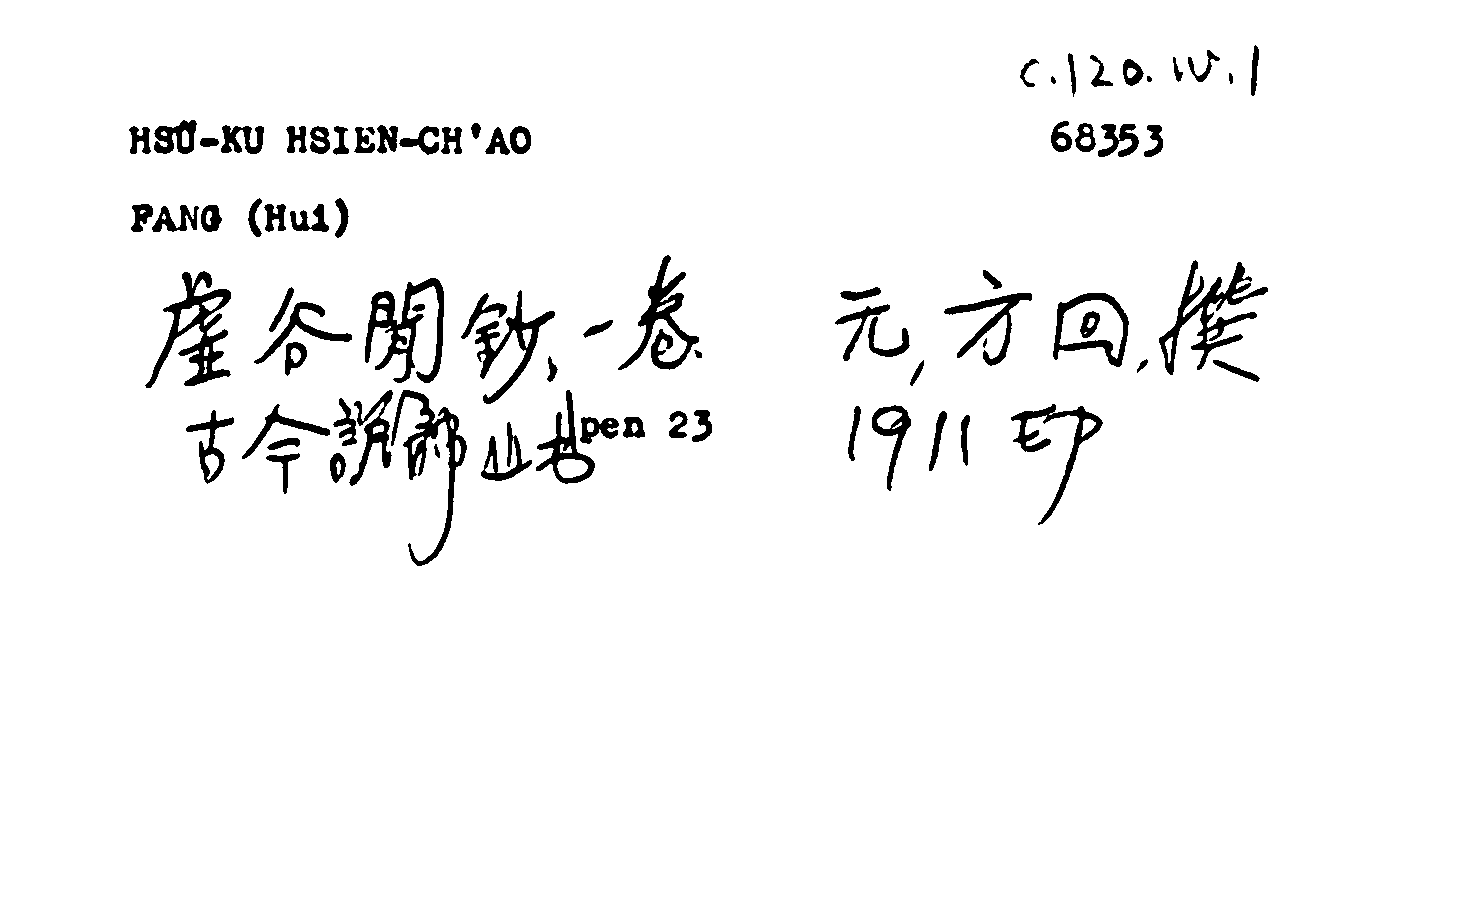 C.120.IV.1
HSÜ-KU HSIEN-CH'AO 68353
FANG (Hui)
虛谷閒鈔、一卷 元,方回,撰
古今説部叢書 pen 23 1911印